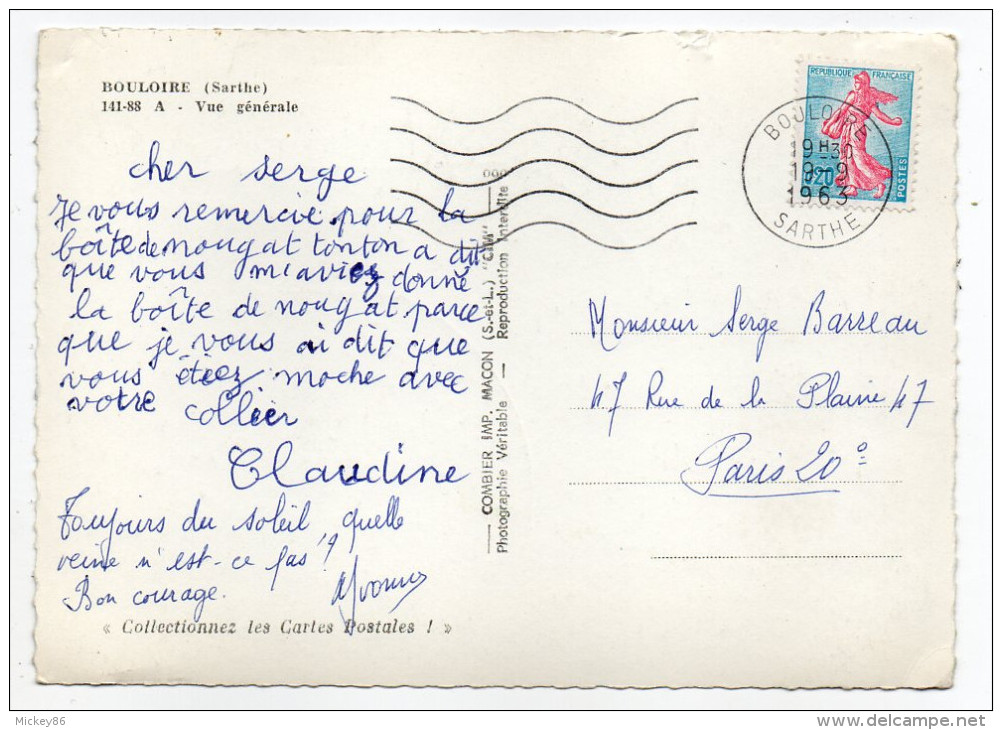 BOULOIRE (Sarthe)
141-88 A - Vue générale
cher serge
Je vous remercie pour la
boîte de nougat tonton a dit
que vous m'aviez donné
la boîte de nougat parce
que je vous ai dit que
vous étiez moche avec
votre collier
Claudine
Toujours du soleil, quelle
veine n'est-ce pas !?
Bon courage. Yvonne
« Collectionnez les Cartes Postales ! »
— COMBIER IMP. MACON (S.-et-L.) "CIM"
Photographie Véritable — Reproduction Interdite
REPUBLIQUE FRANÇAISE
0,20
POSTES
BOULOIRE
19H30
19-9
1963
SARTHE
Monsieur Serge Barreau
47 Rue de la Plaine 47
Paris 20e
Mickey86
delcampe.net